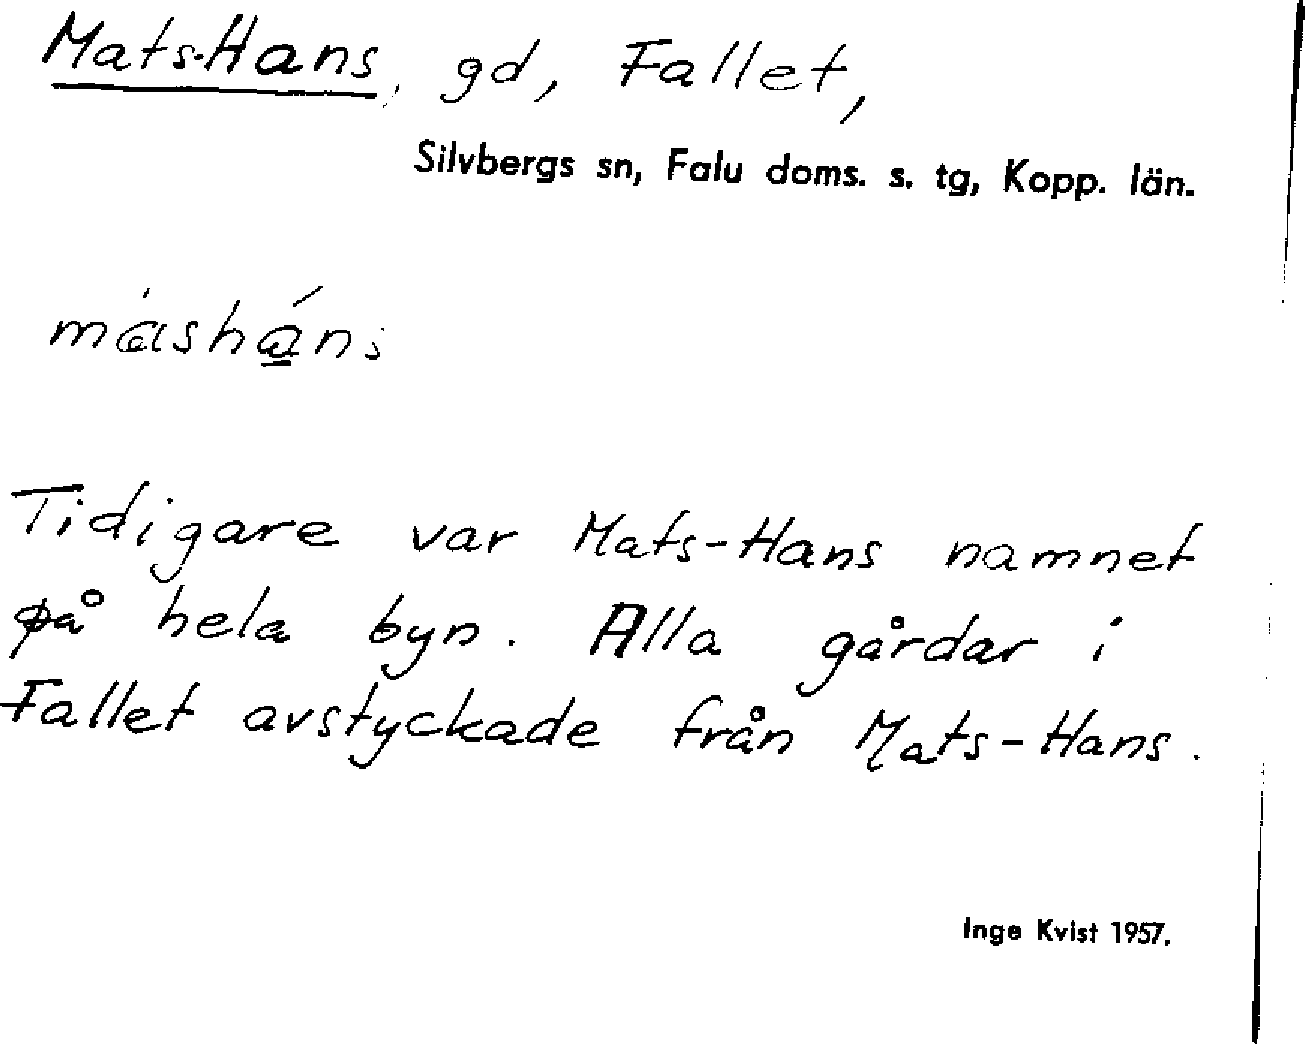 Mats-Hans, gd, Fallet,
Silvbergs sn, Falu doms. s. tg, Kopp. län.
Tidigare var Mats-Hans namnet
på hela byn. Alla gårdar i
Fallet avstyckade från Mats-Hans.
Inge Kvist 1957.